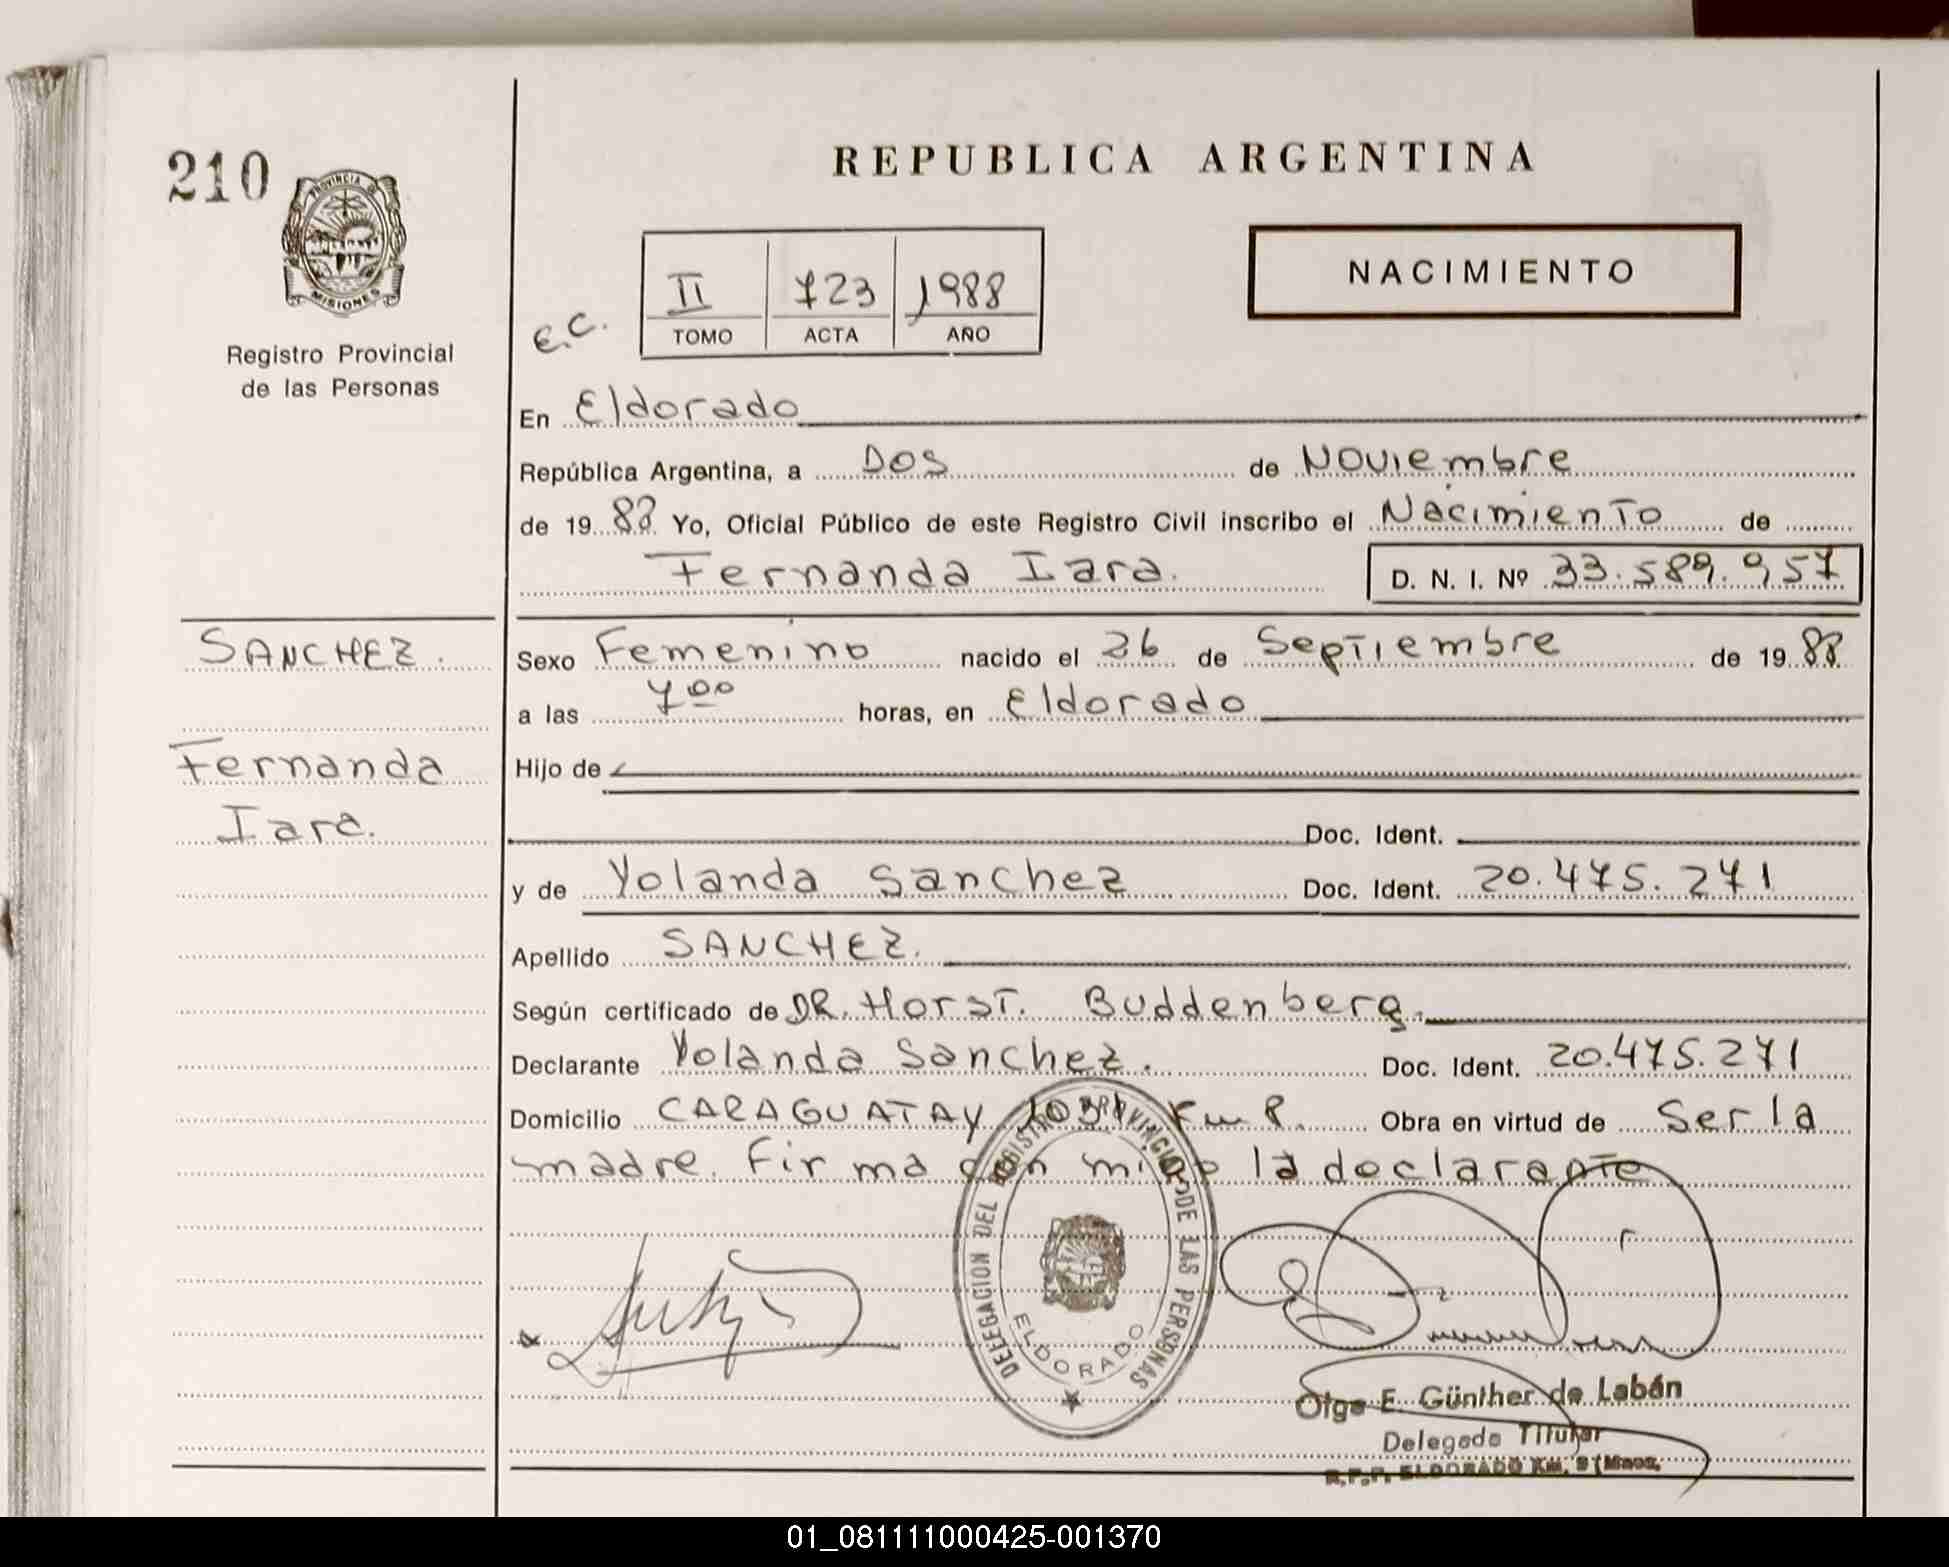 210
PROVINCIA DE
MISIONES
Registro Provincial
de las Personas
REPUBLICA ARGENTINA
NACIMIENTO
E.C.
II 723 1988
TOMO ACTA AÑO
En Eldorado
República Argentina, a Dos de Noviembre
de 19 88 Yo, Oficial Público de este Registro Civil inscribo el Nacimiento de
Fernanda Iara. D. N. I. Nº 33.589.957
SANCHEZ.
Fernanda
Iara.
Sexo Femenino nacido el 26 de Septiembre de 19 88
a las 7 00 horas, en Eldorado
Hijo de
Doc. Ident.
y de Yolanda Sanchez Doc. Ident. 20.475.271
Apellido SANCHEZ.
Según certificado de DR. Horst. Buddenberg.
Declarante Yolanda Sanchez. Doc. Ident. 20.475.271
Domicilio CARAGUATAY Km 8. Obra en virtud de Ser la
madre. Firma la declarante
DELEGACION DEL REGISTRO PROVINCIAL DE LAS PERSONAS
ELDORADO
Olga E. Günther de Labán
Delegada Titular
R.P.P. ELDORADO Km. 9 (Mnes.
01_081111000425-001370